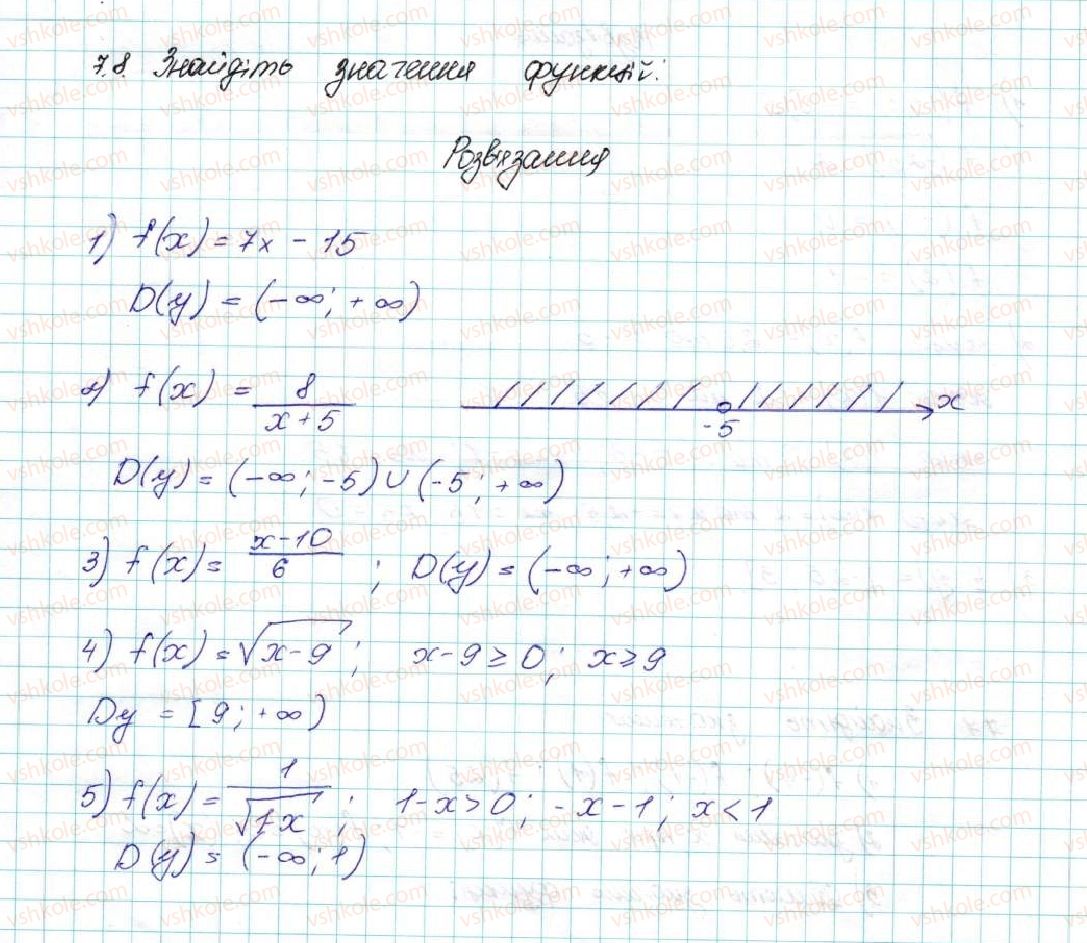 7.8. Знайдіть значення функцій:
Розв'язання
1) f(x) = 7x - 15
D(y) = (-∞; +∞)
2) f(x) = 8/(x+5)
x
-5
D(y) = (-∞; -5) ∪ (-5; +∞)
3) f(x) = (x-10)/6 ; D(y) = (-∞; +∞)
4) f(x) = √(x-9); x-9 ≥ 0; x ≥ 9
Dy = [9; +∞)
5) f(x) = 1/√(1-x) ; 1-x > 0; -x-1; x < 1
D(y) = (-∞; 1)
vshkole.com